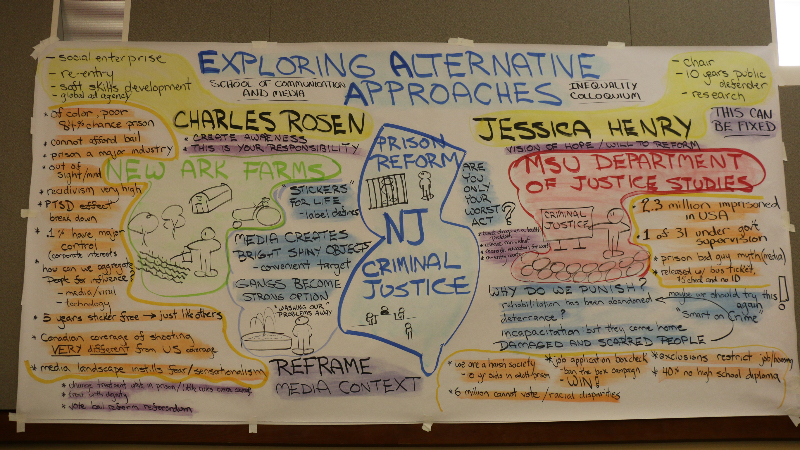 EXPLORING ALTERNATIVE
APPROACHES
SCHOOL OF COMMUNICATION
AND MEDIA
INEQUALITY
COLLOQUIUM
- social enterprise
- re-entry
- soft skills development
- global ad agency
CHARLES ROSEN
* CREATE AWARENESS
* THIS IS YOUR RESPONSIBILITY
* of color, poor
chance prison
* cannot afford bail
* prison a major industry
* out of
sight/mind
* recidivism very high
* PTSD effect
break down
* 1% have major
control
(corporate interests)
* how can we aggregate
people for
- media/viral
- technology
* 5 years sticker free → just like others
* Canadian coverage of shooting
VERY different from US coverage
* media landscape instills fear/sensationalism
* change treatment
* treat with dignity
* vote law reform referendum
NEW ARK FARMS
"STICKERS"
FOR LIFE
- label, defines
MEDIA CREATES
BRIGHT SHINY OBJECTS
- convenient target
GANGS BECOME
STRONG OPTION
"WASHING OUR
PROBLEMS AWAY"
REFRAME
MEDIA CONTEXT
PRISON
REFORM
NJ
CRIMINAL
JUSTICE
- chair
- 10 years public
defender
- research
JESSICA HENRY
THIS CAN
BE FIXED
VISION OF HOPE / WILL TO REFORM
ARE
YOU
ONLY
YOUR
WORST
ACT?
MSU DEPARTMENT
OF JUSTICE STUDIES
CRIMINAL
JUSTICE
* 2.3 million imprisoned
in USA
* 1 of 31 under gov't
supervision
* prison bad guy myth (media)
* released w/ bus ticket,
check and no ID
WHY DO WE PUNISH?
rehabilitation has been abandoned
deterrence?
incapacitation but they come home
DAMAGED AND SCARRED PEOPLE
maybe we should try this
again
"Smart on Crime"
!
* we are a harsh society
* job application box check
- ban the box campaign
- WIN!
* 6 million cannot vote / racial disparities
* exclusions restrict job/housing
* 40% no high school diploma